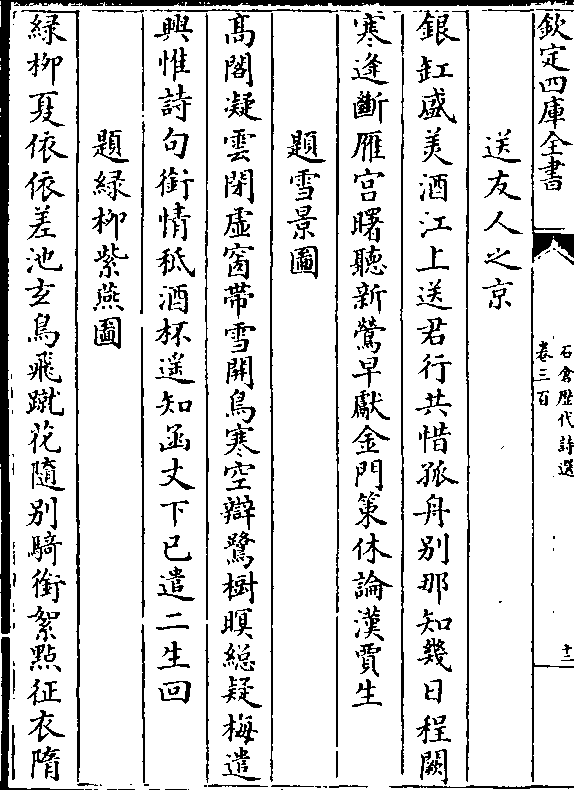 欽定四庫全書
石倉歷代詩選
卷三百
十二
送友人之京
銀缸盛美酒江上送君行共惜孤舟别那知幾日程闕
寒逢斷雁宫曙聽新鶯早獻金門策休論漢賈生
題雪景圖
高閣凝雲閉虛窗帶雪開鳥寒空辯鷺樹暝總疑梅遣
興惟詩句銜情秪酒杯遥知函丈下已遣二生回
題緑柳紫燕圖
緑柳夏依依差池玄鳥飛蹴花隨别騎銜絮點征衣隋